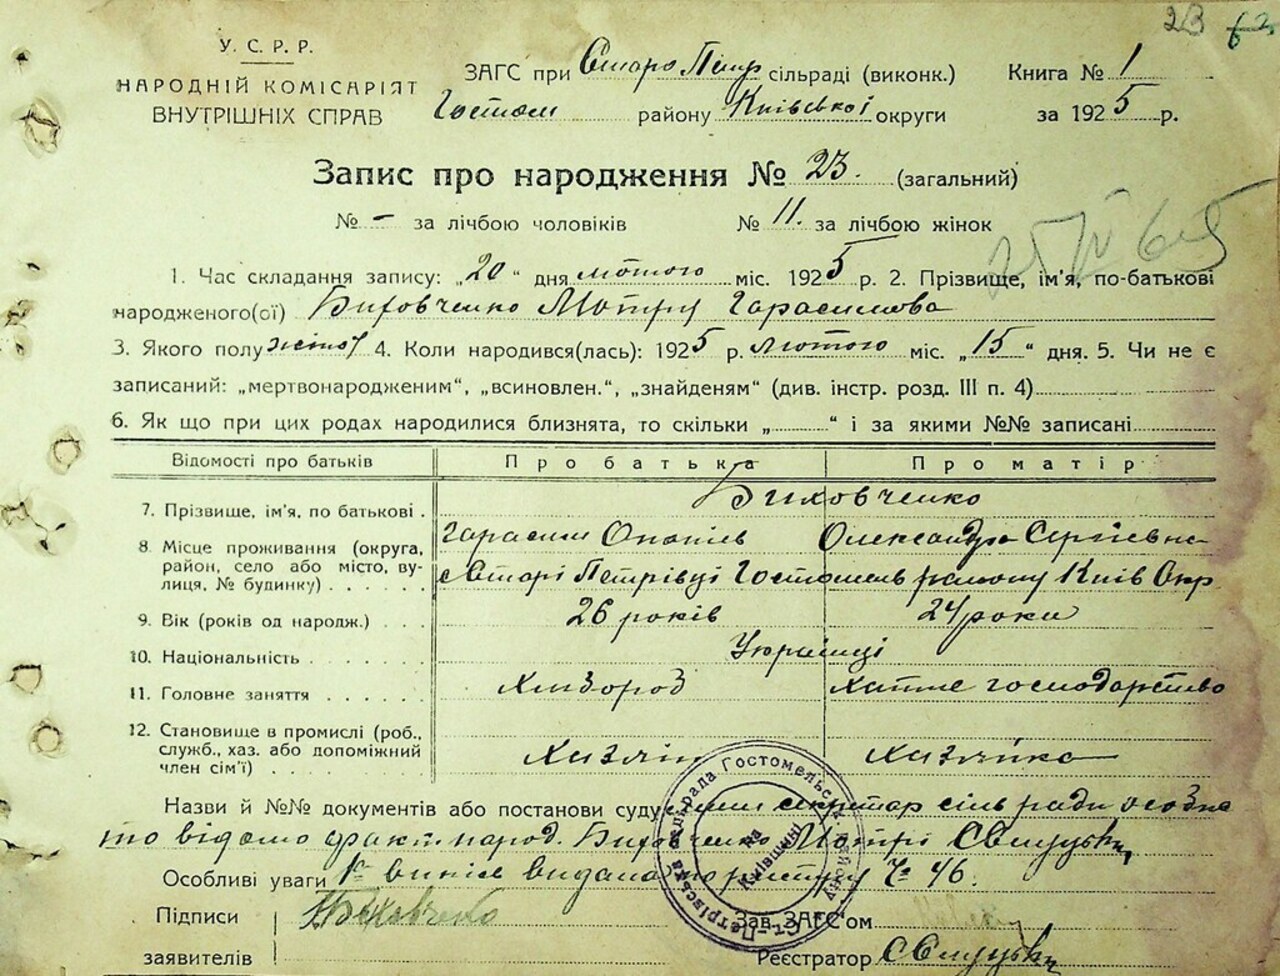 23
У. С. Р. Р.
НАРОДНІЙ КОМІСАРІЯТ
ВНУТРІШНІХ СПРАВ
ЗАГС при Старо Петр сільраді (виконк.) Книга № 1
Гостом району Київської округи за 1925 р.
Запис про народження № 23. (загальний)
№ – за лічбою чоловіків № 11. за лічбою жінок
1. Час складання запису: „20“ дня лютого міс. 1925 р. 2. Прізвище, ім'я, по-батькові
народженого(ої) Биховченко Мотря Гарасимова
3. Якого полу жіноч 4. Коли народився(лась): 1925 р. лютого міс. „15“ дня. 5. Чи не є
записаний: „мертвонародженим“, „всиновлен.“, „знайденям“ (див. інстр. розд. III п. 4)
6. Як що при цих родах народилися близнята, то скільки „ “ і за якими №№ записані
Відомості про батьків Про батька Про матір
Биховченко
7. Прізвище, ім'я, по батькові .
Гарасим Опатів Олександра Сергіевна
8 Місце проживання (округа,
район, село або місто, ву-
лиця, № будинку) . . . . . .
с Старі Петрівці Гостомель району Київ Окр
9. Вік (років од народж.) . . . 26 років 24 роки
10. Національність . . . . . . . Українці
11. Головне заняття . . . . . . Хлібороб хатнє господарство
12. Становище в промислі (роб.,
служб., хаз. або допоміжний
член сім'ї) . . . . . . . . .
Хазяїн Хазяйка
Назви й №№ документів або постанови суду секретар сільради особисто
відомо факт народ. Биховченко Мотрі
Особливі уваги випис видана по реєстру Ч 46.
Підписи
заявителів
Биховченко
Зав. ЗАГС'ом
Реєстратор
Ст.-Петрівська сільрада Гостомельськ. району
на Київщині